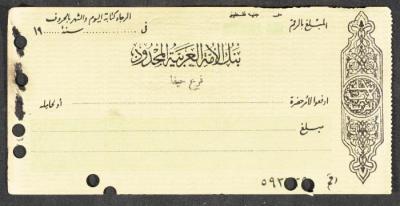 المبلغ بالرقم
مل جنيه فلسطيني
الرجاء كتابة اليوم والشهر بالحروف
في سنة ١٩
بنك الأمة العربية المحدود
فرع حيفا
ادفعوا لأمر حضرة أو لحامله
مبلغ
رقم